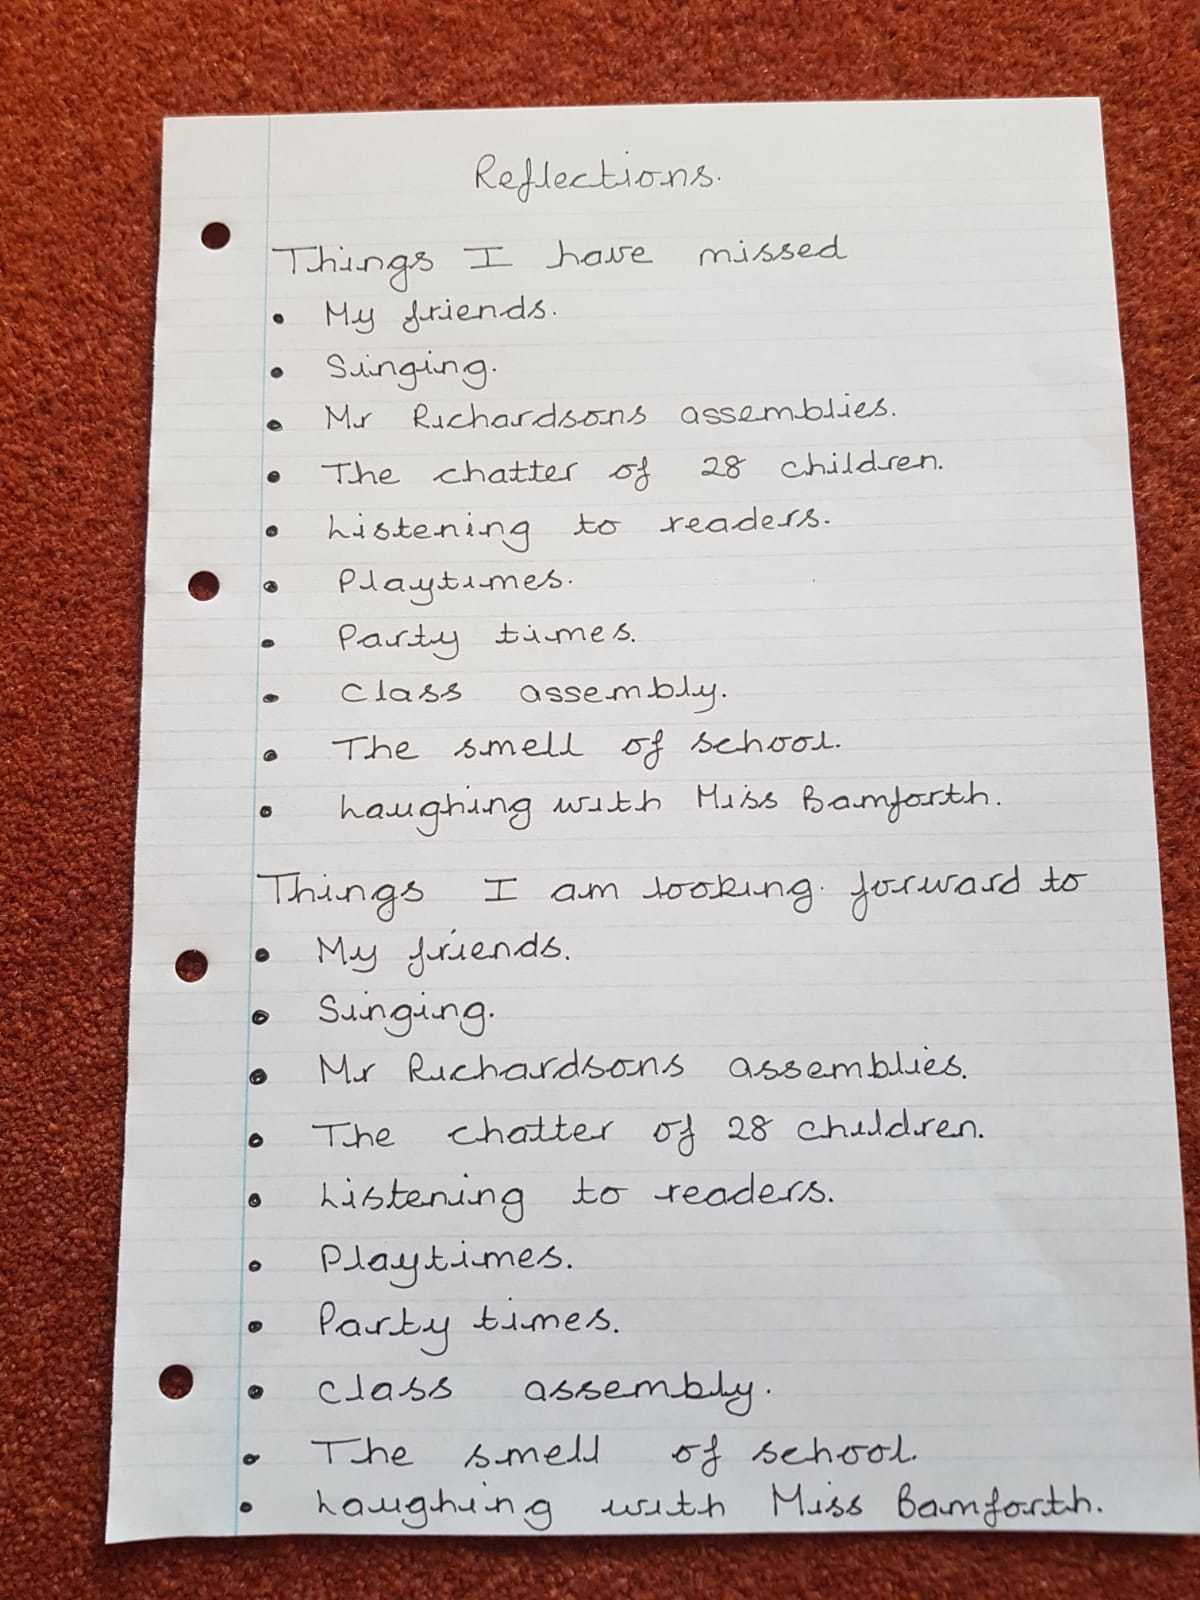 Reflections.
Things I have missed
• My friends.
• Singing.
• Mr Richardsons assemblies.
• The chatter of 28 children.
• Listening to readers.
• Playtimes.
• Party times.
• Class assembly.
• The smell of school.
• Laughing with Miss Bamforth.
Things I am looking forward to
• My friends.
• Singing.
• Mr Richardsons assemblies.
• The chatter of 28 children.
• Listening to readers.
• Playtimes.
• Party times.
• Class assembly.
• The smell of school.
• Laughing with Miss Bamforth.